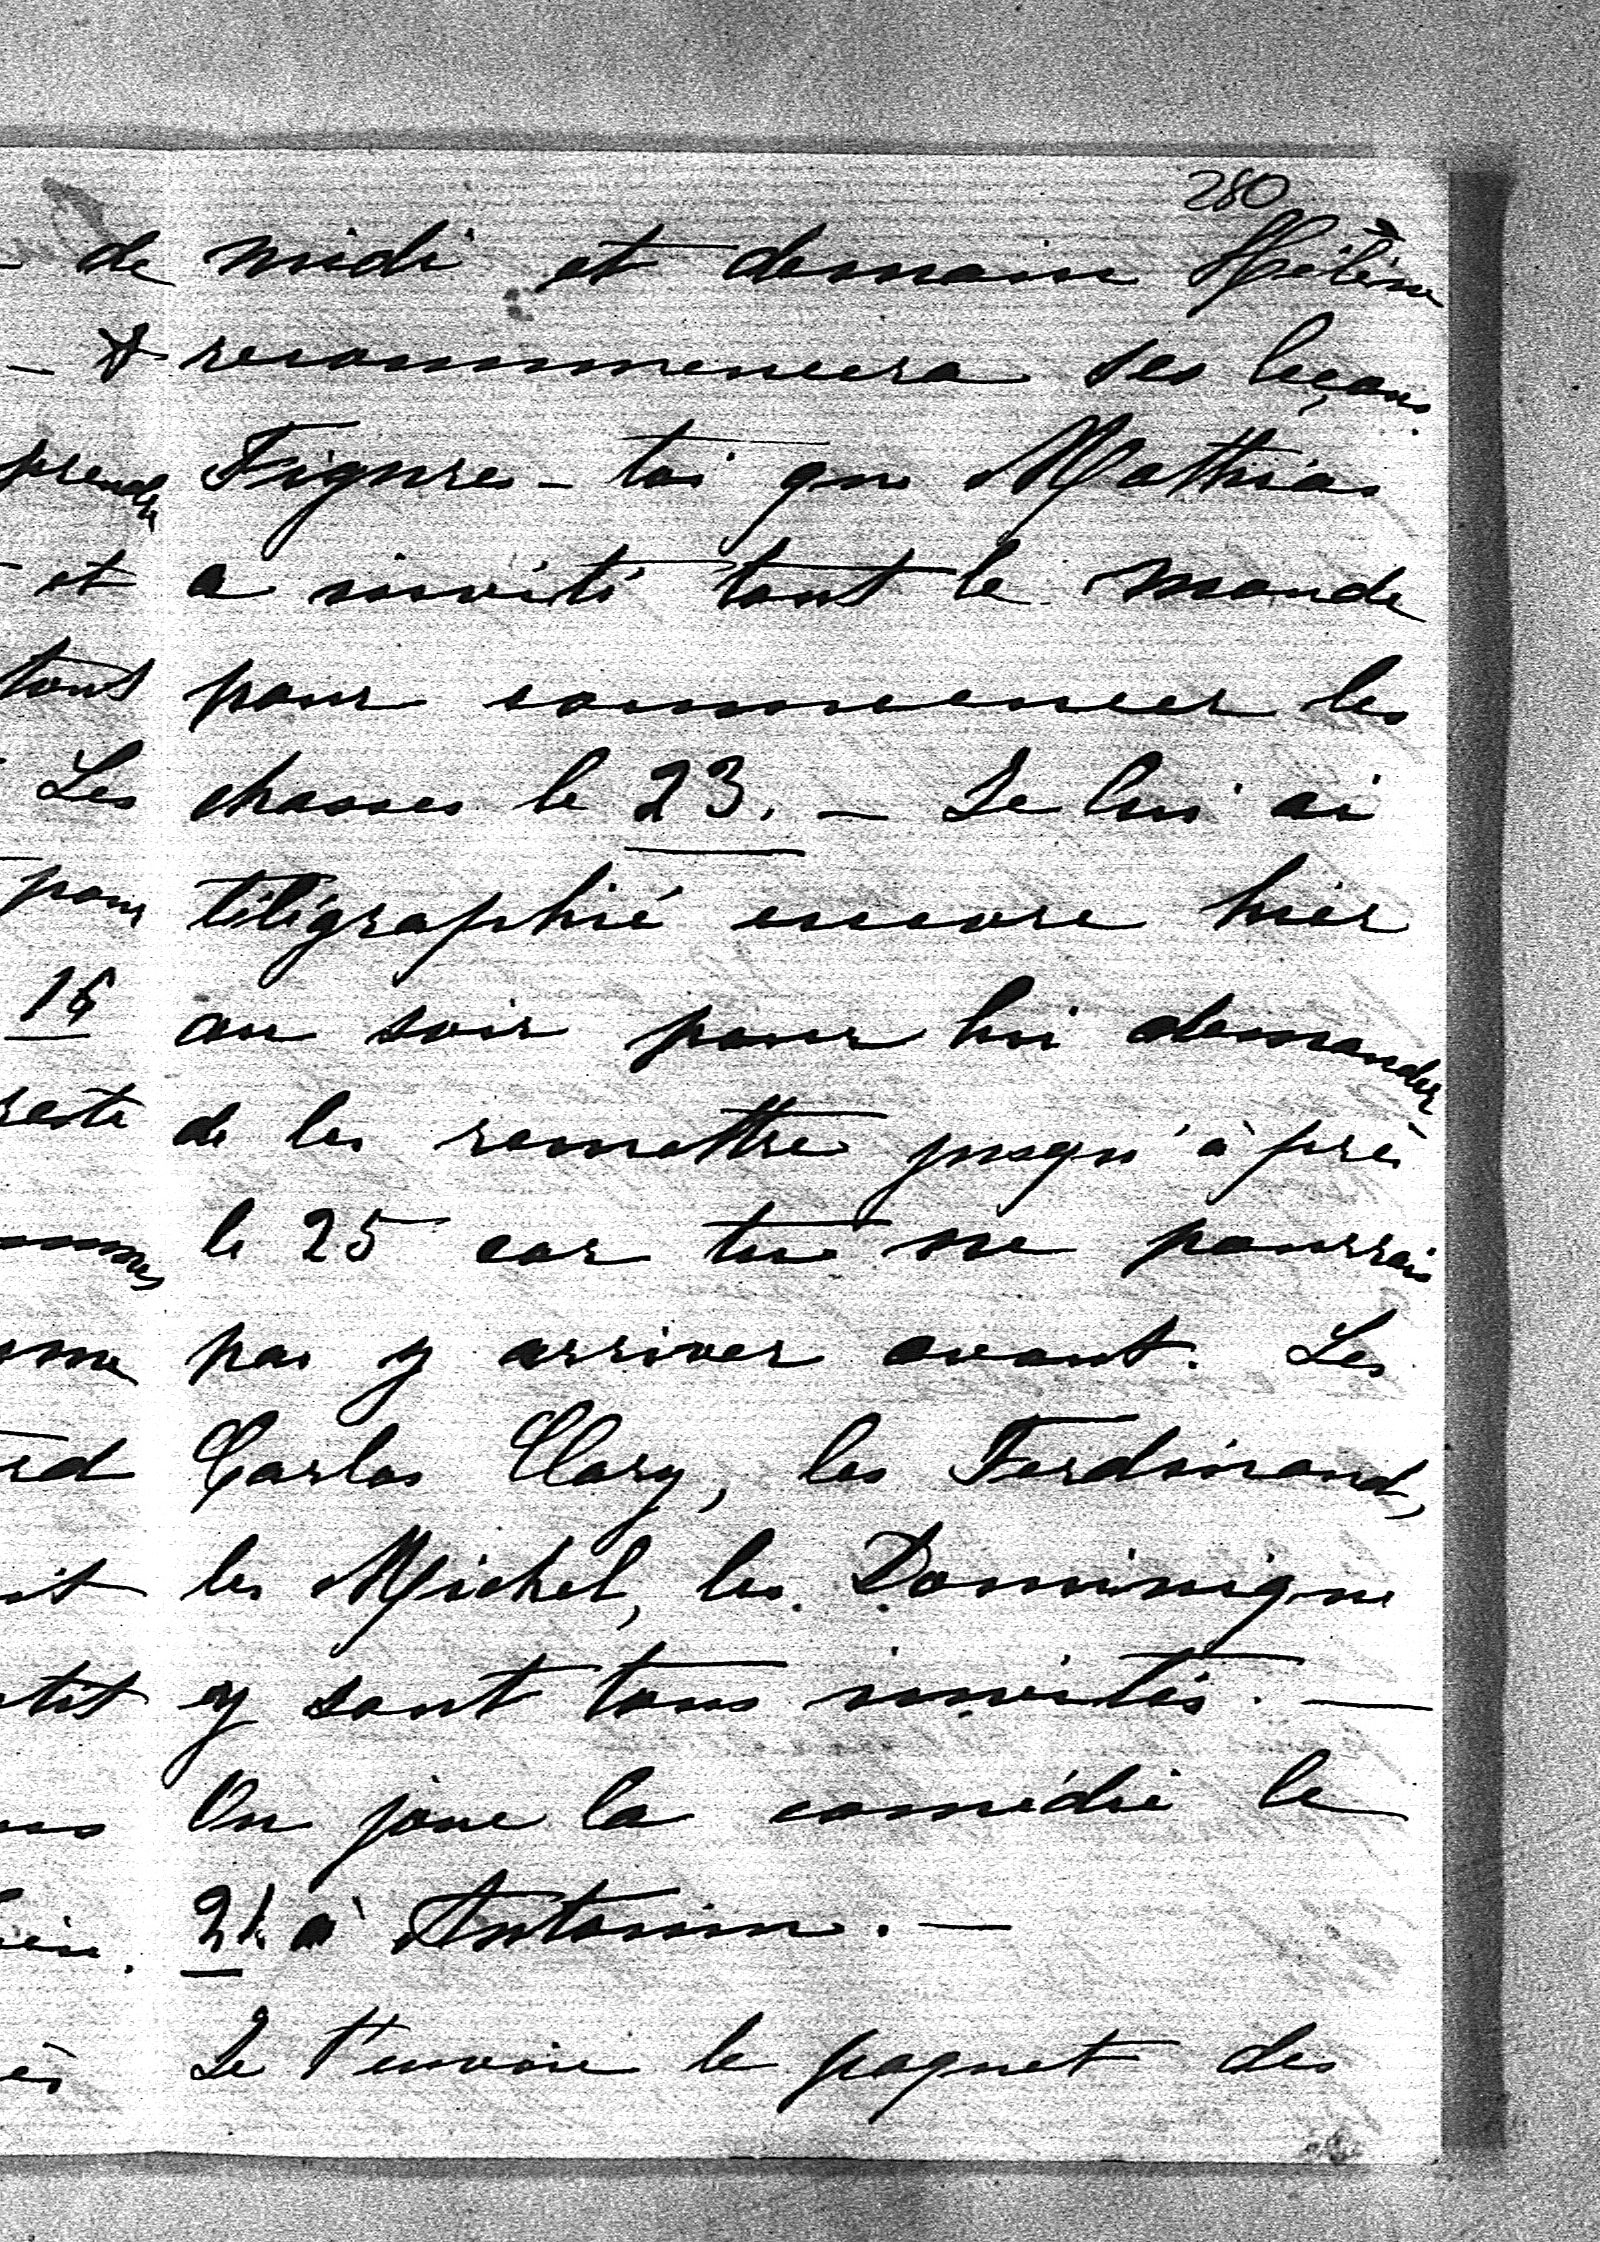 280
de midi et demain Hélène
recommencera ses leçons.
Figures-toi que Mathias
a invité tout le monde
pour commencer les
chasses le 23. — Je lui ai
télégraphié encore hier
au soir pour lui demander
de les remettre jusqu'à près
le 25 car tu ne pourrais
pas y arriver avant. Les
Carlos Clary, les Ferdinand,
les Michel, les Dominique
y sont tous invités. —
On joue la comédie le
à Antonin. —
Je t'envoie le paquet des
prendre
et
tout
Les
pour
16
reste